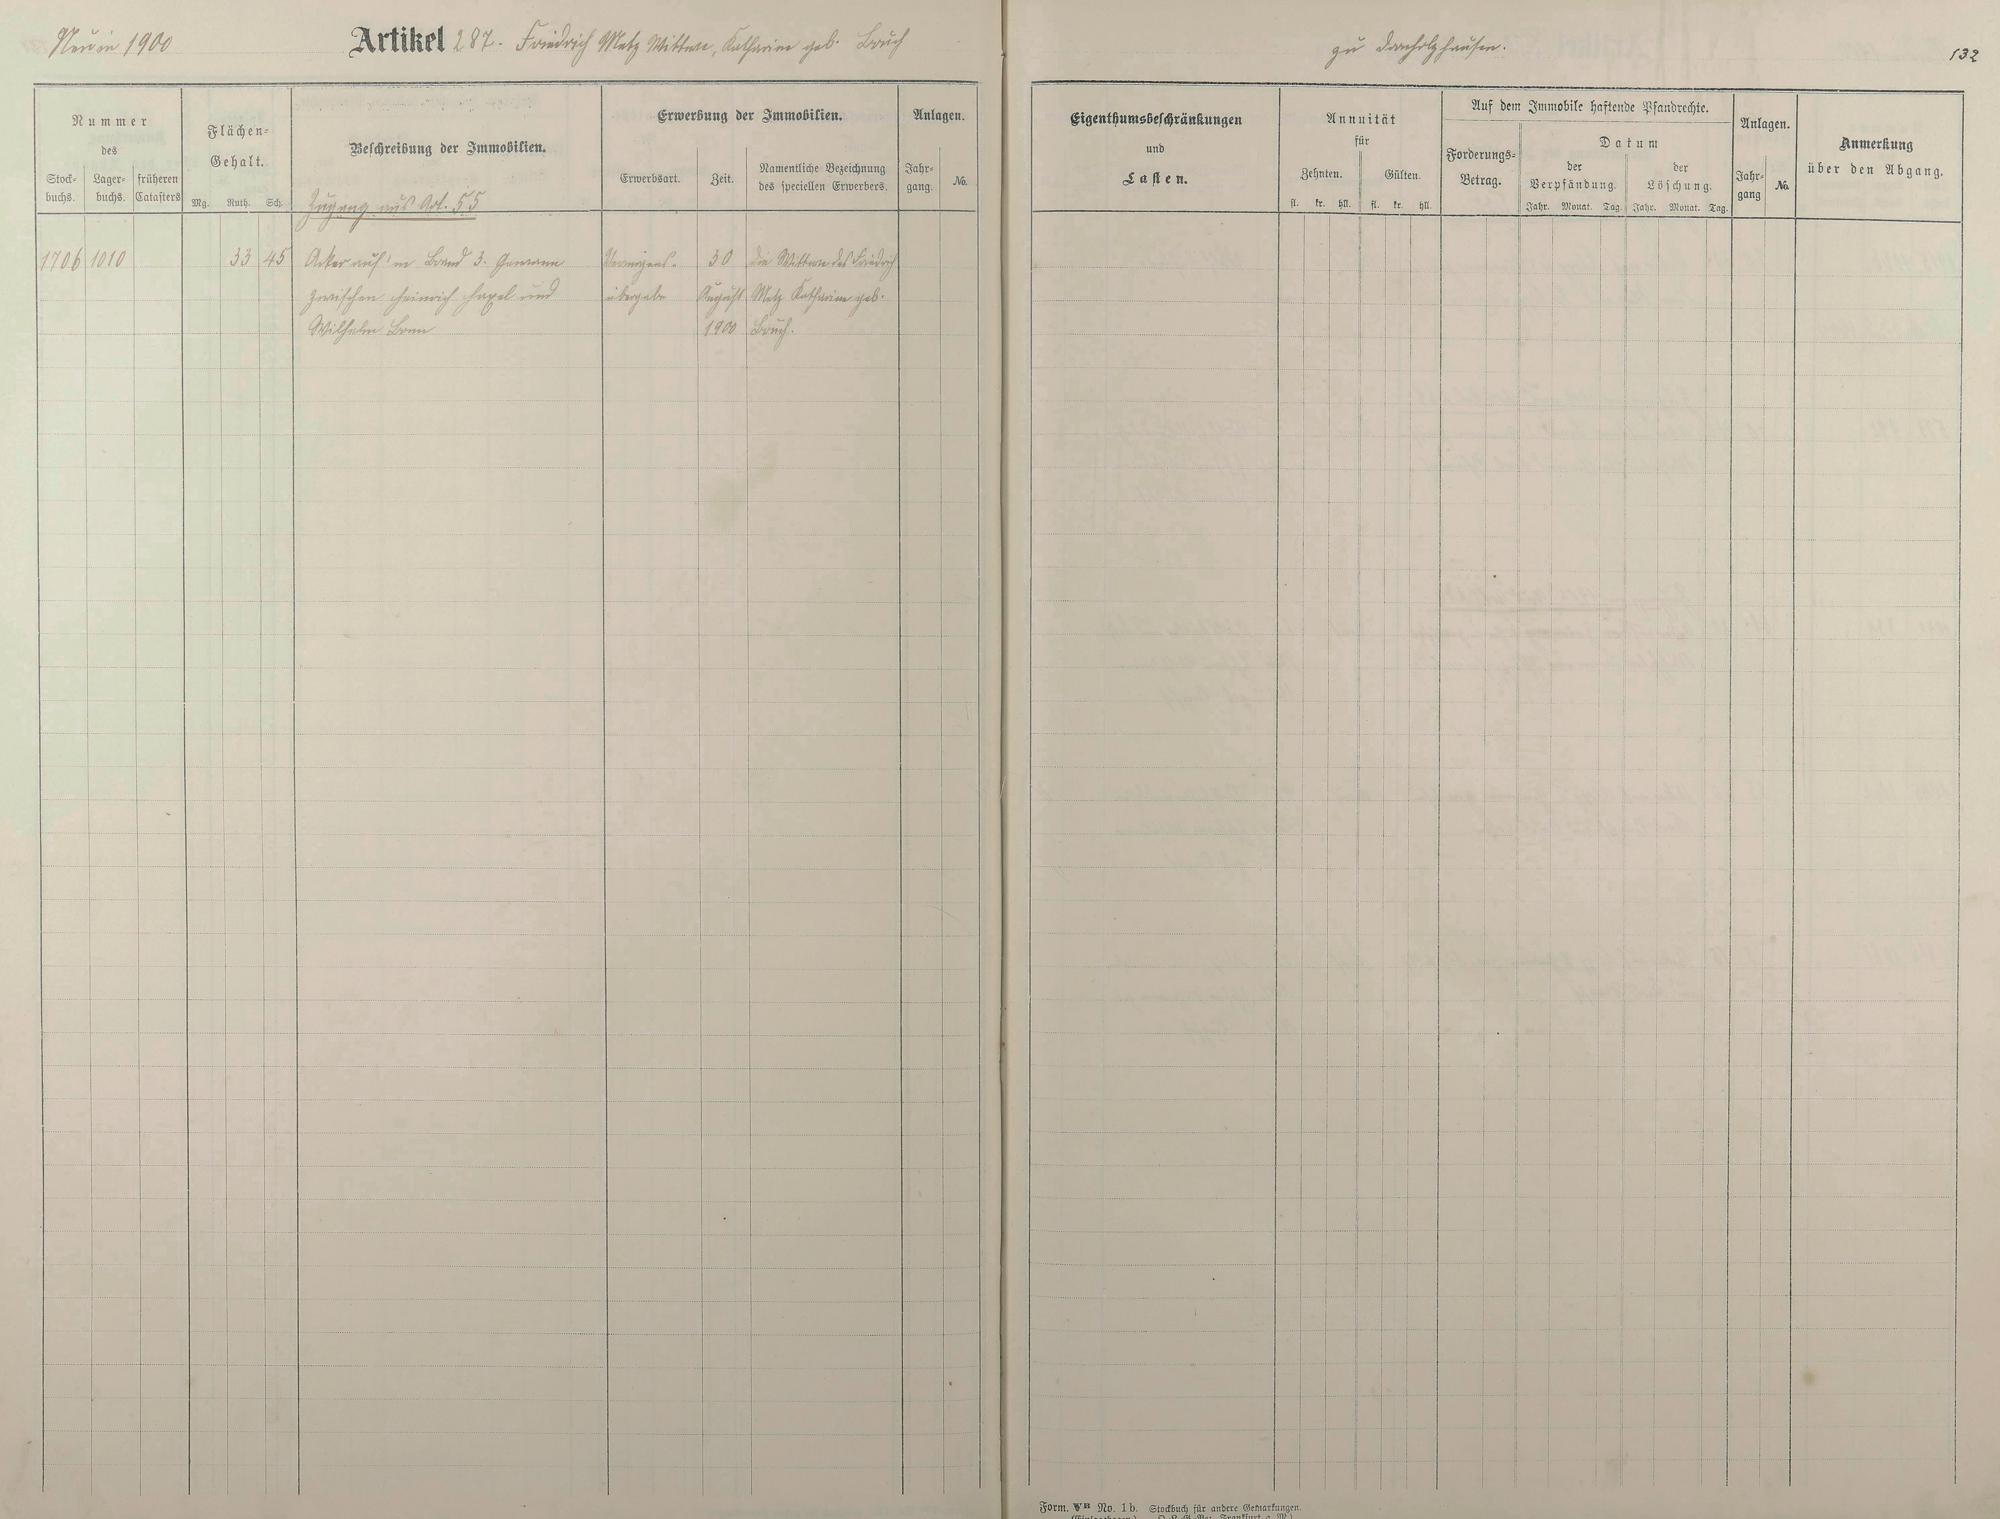 Neu in 1900
Artikel 287. Friedrich Metz Wittwe, Katharine geb. Bruch
zu Dornholzhausen.
132
Nummer
des
Stock-
buchs.
Lager-
buchs.
früheren
Catasters
Flächen-
Gehalt.
Mg. Ruth. Sch.
Beschreibung der Immobilien.
Erwerbung der Immobilien.
Erwerbsart.
Zeit.
Namentliche Bezeichnung
des speciellen Erwerbers.
Anlagen.
Jahr-
gang.
No.
Eigenthumsbeschränkungen
und
Lasten.
Annuität
für
Zehnten.
Gülten.
fl. kr. hll. fl. kr. hll.
Auf dem Immobile haftende Pfandrechte.
Forderungs-
Betrag.
Datum
der
Verpfändung.
der
Löschung.
Jahr. Monat. Tag. Jahr. Monat. Tag.
Anlagen.
Jahr-
gang
No.
Anmerkung
über den Abgang.
Zugang aus Art. 55
1706 1010 33 45 Acker auf'm Brand 3. Gewann 30 die Wittwe des Friedrich
zwischen Heinrich und übergabe August Metz Katharine geb.
Wilhelm 1900 Bruch.
Form. No. 1b. Stockbuch für andere Gemarkungen.